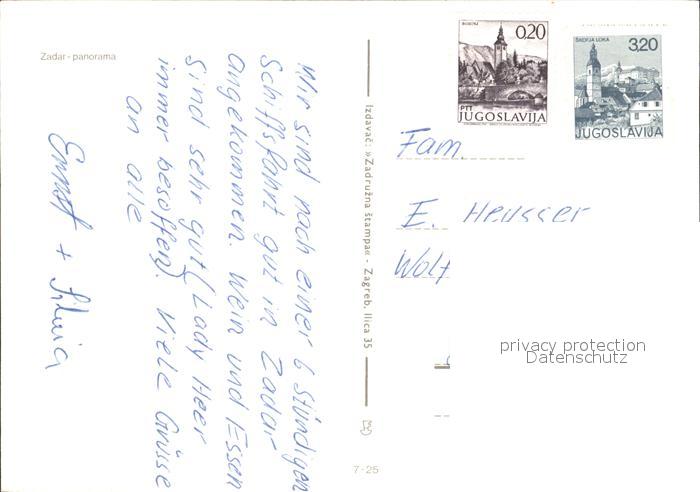 Zadar - panorama
Wir sind nach einer 6 stündigen
Schiffsfahrt gut in Zadar
angekommen. Wein und Essen
sind sehr gut (Lady Heer
immer besoffen). Viele Grüsse
an alle
Ernst + Silvia
Izdavač: »Zadružna štampa« - Zagreb, Ilica 35
7-25
BOHINJ
0,20
PTT
JUGOSLAVIJA
ŠKOFJA LOKA
3,20
JUGOSLAVIJA
Fam.
E. Heusser
Wolf
privacy protection
Datenschutz